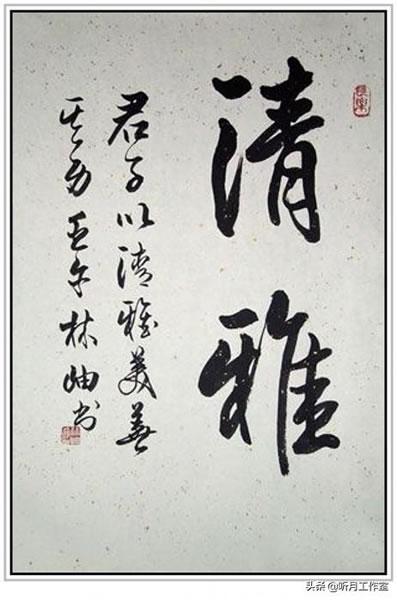 清雅
君子以清雅美善
其身壬午林岫书
头条 @听月工作室